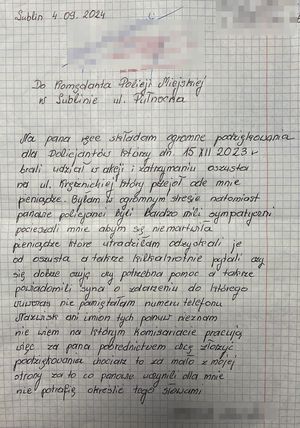 Lublin 4.09.2024
Do Komędanta Policji Miejskiej
w Lublinie ul. Północna
Na pana ręce składam ogromne podziękowania
dla Policjantów którzy dn. 15 XII 2023 r
brali udział w akcji i zatrzymaniu oszusta
na ul. Krężnickiej który przejoł ode mnie
pieniądze. Byłam w ogromnym stresie natomiast
panowie policjanci byli bardzo mili sympatyczni
pocieszali mnie abym się niemartwiła
pieniądze które utraciłam odzyskali je
od oszusta a takrze kilkakrotnie pytali czy
się dobrze czuję czy potrzebna pomoc a takrze
powiadomili syna o zdarzeniu do którego
wuwczas nie pamiętałam numeru telefonu
Nazwisk ani imion tych panuw nieznam
nie wiem na którym komisariacie pracują
więc za pana pośrednictwem chcę złożyć
podziękowania chociarz to za mało z mojej
strony za to co panowie uczynili dla mnie
nie potrafię określić tego słowami